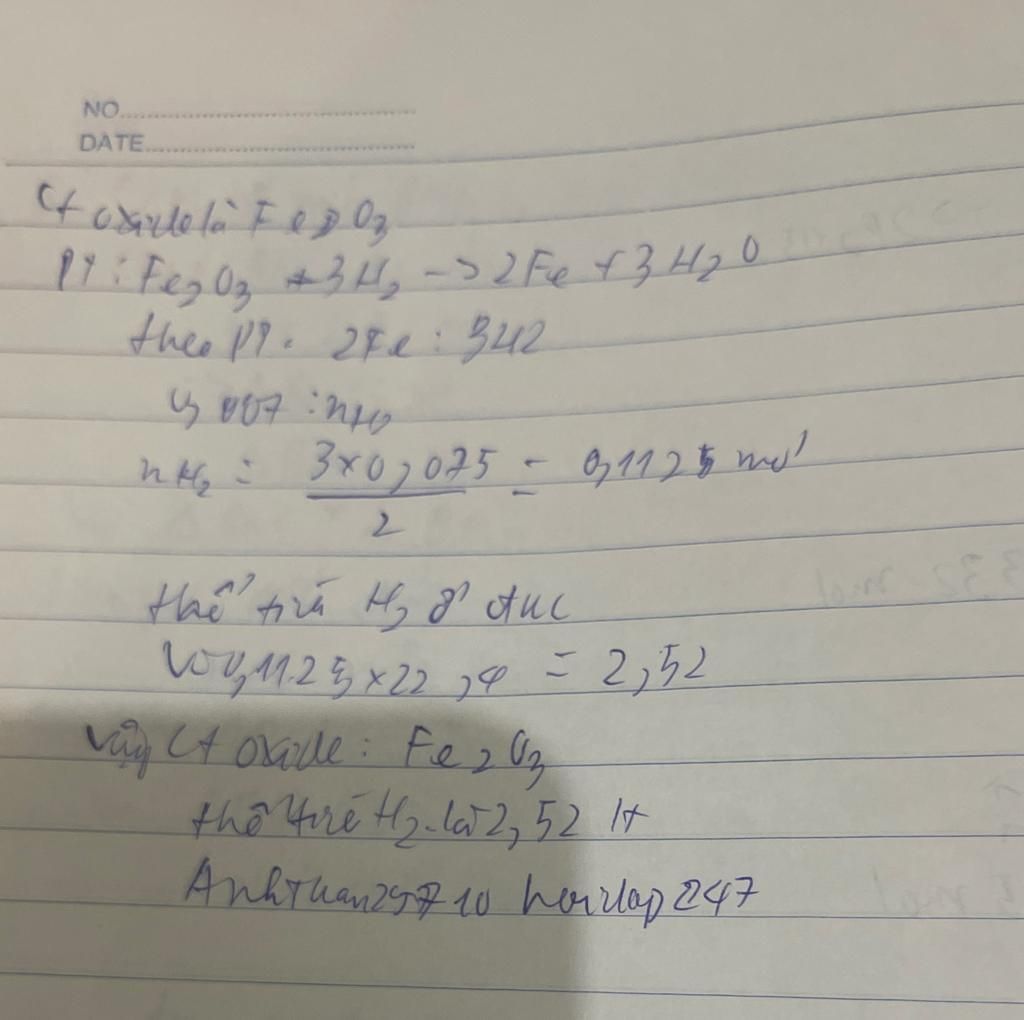 NO
DATE
Ct oxide là Fe2O3
PT: Fe2O3 + 3H2 -> 2Fe + 3H2O
theo PT. 2Fe : 3H2
: nH2
nH2 = 3x0,075 / 2 = 0,1125 mol
thể tích H2 ở đkc
V=0,1125 x 22,4 = 2,52
Vậy Ct oxide: Fe2O3
thể tích H2 là 2,52 lt